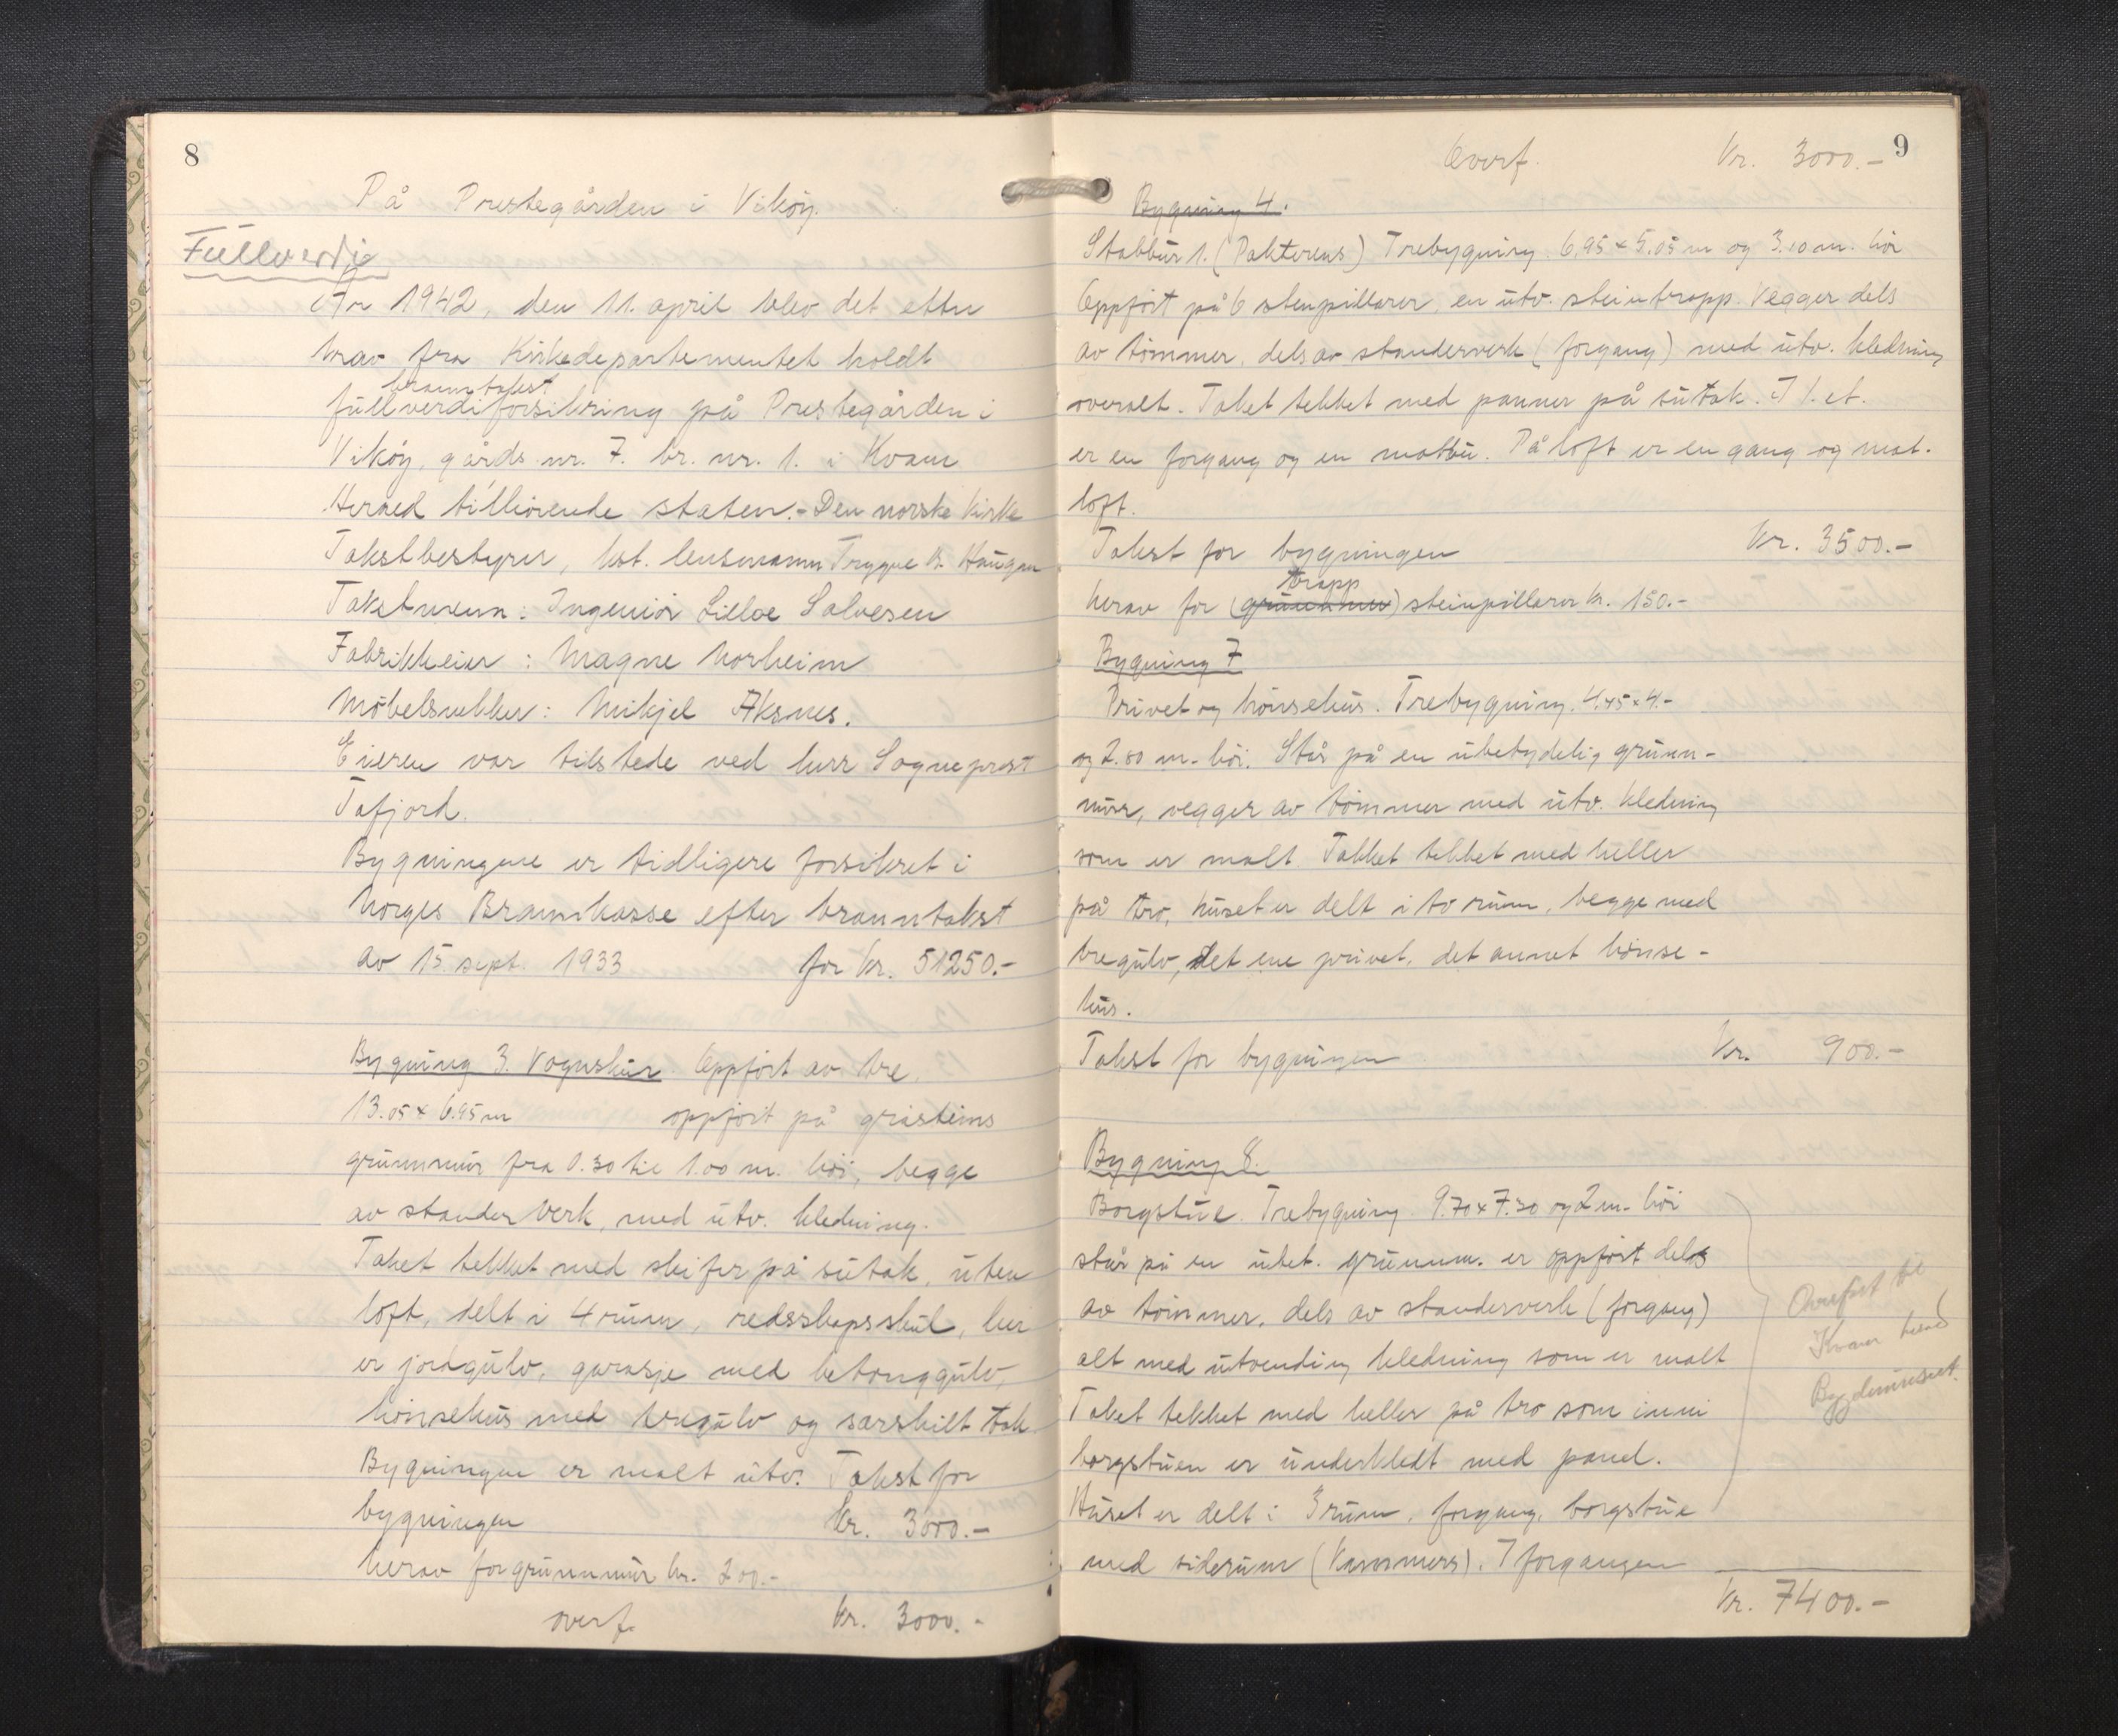 8
På Prestegården i Vikøy.
Fullverdi
År 1942, den 11. april blev det etter
krav fra Kirkedepartementet holdt
branntakst
fullverdiforsikring på Prestegården i
Vikøy, gårds nr. 7. br. nr. 1. i Kvam
Herred tilhørende staten.- Den norske kirke
Takstbestyrer, kst. lensmann Trygve B. Haugen
Takstmenn: Ingeniør Lilloe Salvesen
Fabrikkeier: Magne Norheim
Møbelsnekker: Mikjel Aksnes.
Eieren var tilstede ved herr Sogneprest
Tafjord.
Bygningene er tidligere forsikret i
Norges Brannkasse efter branntakst
av 15. sept. 1933 for kr. 51250.-
Bygning 3. Vognskur. Oppført av tre.
13.05 x 6.95 m oppført på gråsteins
grunnmur fra 0.30 til 1.00 m. høi, begge
av stenderverk, med utv. kledning.
Taket tekket med skifer på sutak, uten
loft, delt i 4 rum, redskapsskul, her
er jordgulv, garasje med betonggulv,
hønsehus med tregulv og særskilt tak
Bygningen er malt utv. Takst for
bygningen Kr. 3000.-
herav for grunnmur kr. 200.-
overf. Kr. 3000.-
9
Overf. Kr. 3000.-
Bygning 4.
Stabbur 1. (Paktorens) Trebygning 6.95 x 5.05 m og 3.10 m. høi
Oppført på 6 stenpillarer, en utv. steintrapp. Vegger dels
av tømmer, dels av stenderverk (forgang) med utv. kledning
overalt. Taket tekket med panner på sutak. I 1. et.
er en forgang og en matbu. På loft er en gang og mat-
loft.
Takst for bygningen Kr. 3500.-
trapp
herav for (grunnmur) steinpillarer kr. 150.-
Bygning 7
Privet og hønsehus. Trebygning. 4.45 x 4.-
og 2.80 m. høi. Står på en ubetydelig grunn-
mur, vegger av tømmer med utv. kledning
som er malt. Takket tekket med heller
på tro, huset er delt i to rum, begge med
tregulv, det ene privet, det annet hønse-
hus.
Takst for bygningen Kr. 900.-
Bygning 8.
Borgstue. Trebygning 9.70 x 7.30 og 2 m. høi
står på en ubet. grunnm. er oppført dels
av tømmer, dels av stenderverk (forgang)
alt med utvendig kledning som er malt
Taket tekket med heller på tro som inni
borgstuen er underkledt med panel.
Huset er delt i 3 rum, forgang, borgstue
med siderum (Kammers). I forgangen
Kr. 7400.-
Overført til
Kvam herad
Bygdemuseet.